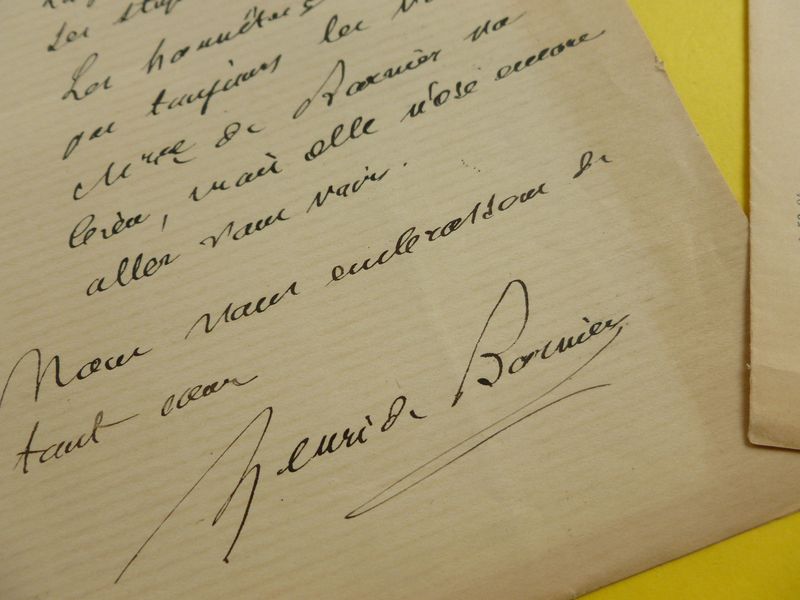 Les
Les honnêtes
pas toujours les
Mme de Bornier va
bien, mais elle n'ose encore
aller vous voir.
Nous vous embrassons de
tout cœur
Henri de Bornier